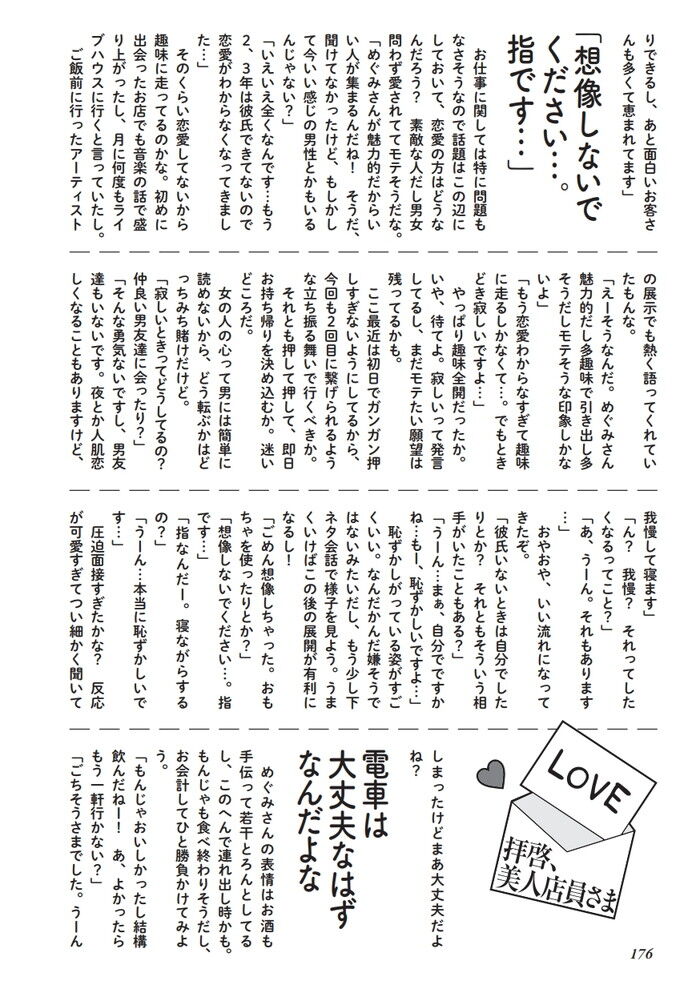 りできるし、あと面白いお客さ
んも多くて恵まれてます」
「想像しないで
ください…。
指です…」
お仕事に関しては特に問題も
なさそうなので話題はこの辺に
しておいて、恋愛の方はどうな
んだろう？　素敵な人だし男女
問わず愛されててモテそうだな。
「めぐみさんが魅力的だからい
い人が集まるんだね！　そうだ、
聞けてなかったけど、もしかし
て今いい感じの男性とかもいる
んじゃない？」
「いえいえ全くなんです…もう
2、3年は彼氏できてないので
恋愛がわからなくなってきまし
た…」
そのくらい恋愛してないから
趣味に走ってるのかな。初めに
出会ったお店でも音楽の話で盛
り上がったし、月に何度もライ
ブハウスに行くと言っていたし。
ご飯前に行ったアーティスト
の展示でも熱く語ってくれてい
たもんな。
「えーそうなんだ。めぐみさん
魅力的だし多趣味で引き出し多
そうだしモテそうな印象しかな
いよ」
「もう恋愛わからなすぎて趣味
に走るしかなくて…。でもとき
どき寂しいですよ…」
やっぱり趣味全開だったか。
いや、待てよ。寂しいって発言
してるし、まだモテたい願望は
残ってるかも。
ここ最近は初日でガンガン押
しすぎないようにしてるから、
今回も2回目に繋げられるよう
な立ち振る舞いで行くべきか。
それとも押して押して、即日
お持ち帰りを決め込むか。迷い
どころだ。
女の人の心って男には簡単に
読めないから、どう転ぶかはど
っちみち賭けだけど。
「寂しいときってどうしてるの？
仲良い男友達に会ったり？」
「そんな勇気ないですし、男友
達もいないです。夜とか人肌恋
しくなることもありますけど、
我慢して寝ます」
「ん？　我慢？　それってした
くなるってこと？」
「あ、うーん。それもあります
…」
おやおや、いい流れになって
きたぞ。
「彼氏いないときは自分でした
りとか？　それともそういう相
手がいたこともある？」
「うーん…まぁ、自分でですか
ね…もー、恥ずかしいですよ…」
恥ずかしがっている姿がすご
くいい。なんだかんだ嫌そうで
はないみたいだし、もう少し下
ネタ会話で様子を見よう。うま
くいけばこの後の展開が有利に
なるし！
「ごめん想像しちゃった。おも
ちゃを使ったりとか？」
「想像しないでください…。指
です…」
「指なんだー。寝ながらする
の？」
「うーん…本当に恥ずかしいで
す…」
圧迫面接すぎたかな？　反応
が可愛すぎてつい細かく聞いて
LOVE
拝啓、
美人店員さま
しまったけどまあ大丈夫だよ
ね？
電車は
大丈夫なはず
なんだよな
めぐみさんの表情はお酒も
手伝って若干とろんとしてる
し、このへんで連れ出し時かも。
もんじゃも食べ終わりそうだし、
お会計してひと勝負かけてみよ
う。
「もんじゃおいしかったし結構
飲んだねー！　あ、よかったら
もう一軒行かない？」
「ごちそうさまでした。うーん
176